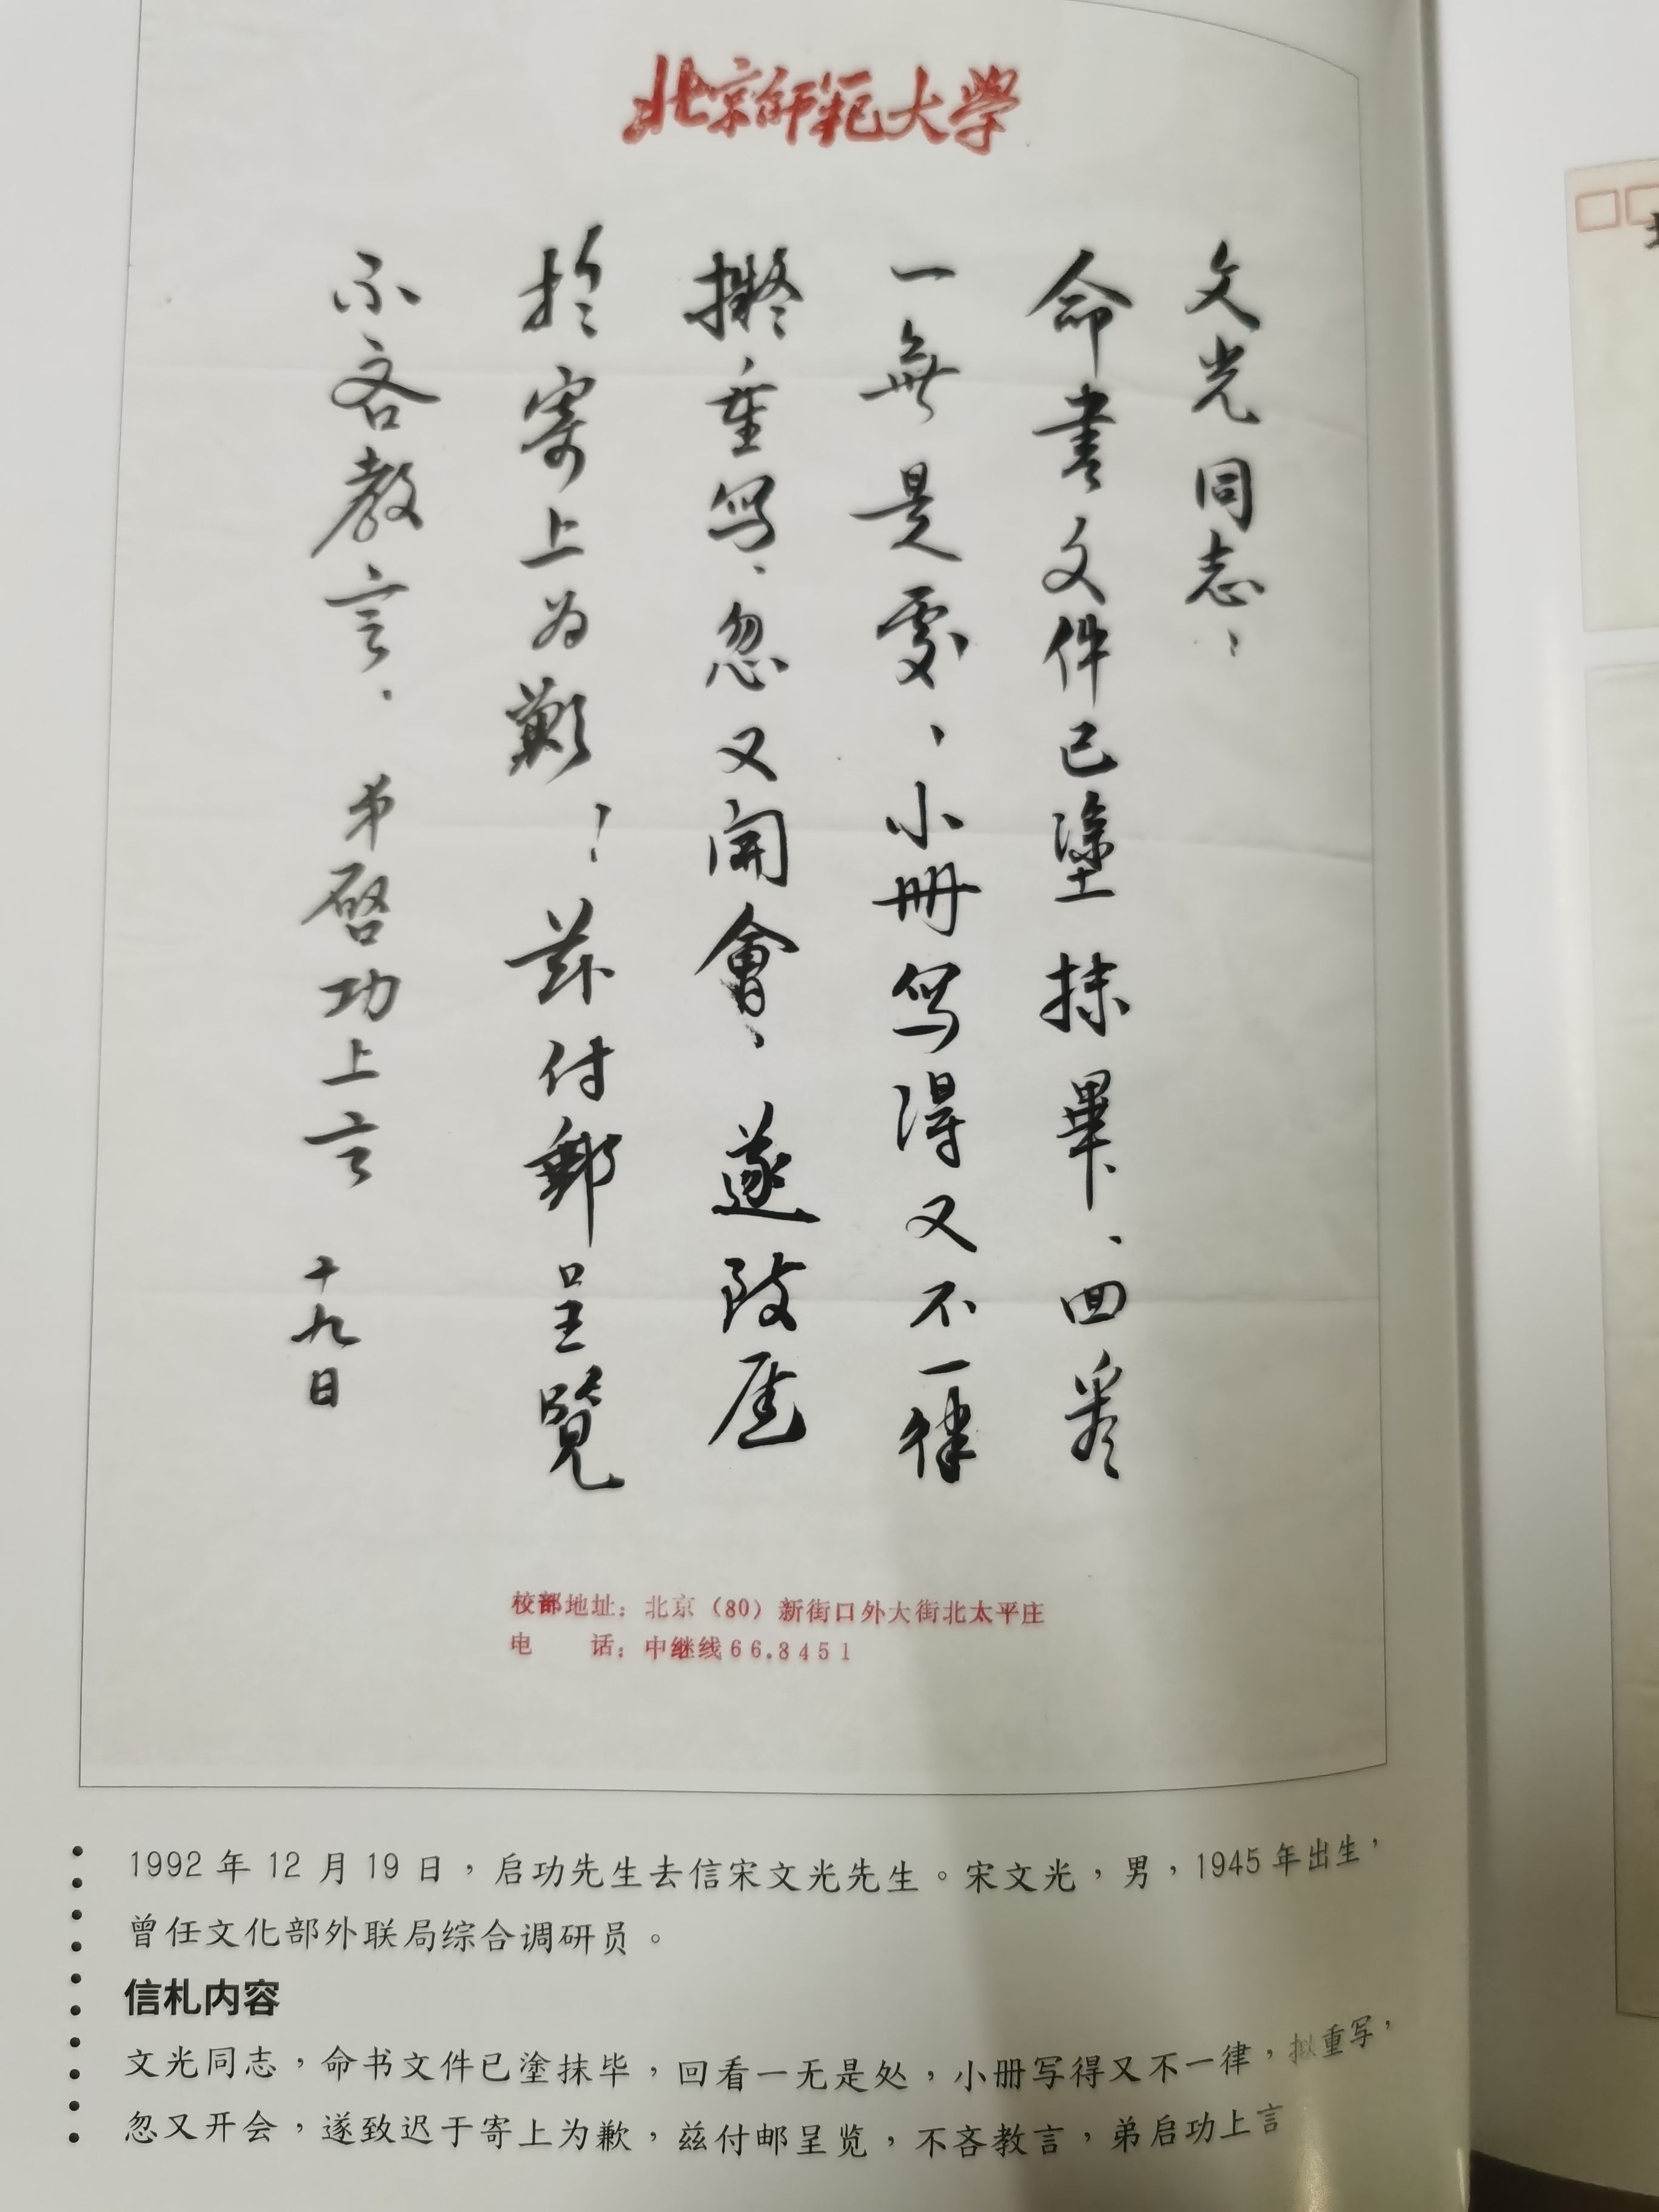 北京師範大學
文光同志：
命書文件已塗抹畢、回看
一無是處、小冊写得又不一律
擬重写、忽又開會、遂致遲
於寄上为歉！茲付郵呈覽
不吝教言。弟啓功上言 十九日
校部地址：北京（80）新街口外大街北太平庄
电 话：中继线66.8451
1992年12月19日，启功先生去信宋文光先生。宋文光，男，1945年出生，
曾任文化部外联局综合调研员。
信札内容
文光同志，命书文件已塗抹毕，回看一无是处，小册写得又不一律，拟重写，
忽又开会，遂致迟于寄上为歉，兹付邮呈览，不吝教言，弟启功上言